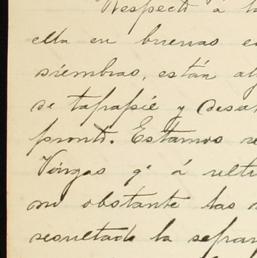 Respecto á la
ella en buenas co
siembras, están al
de tapapié y desa
pronto. Estamos se
Vargas qº á ulti
no obstante las
resultado la separa